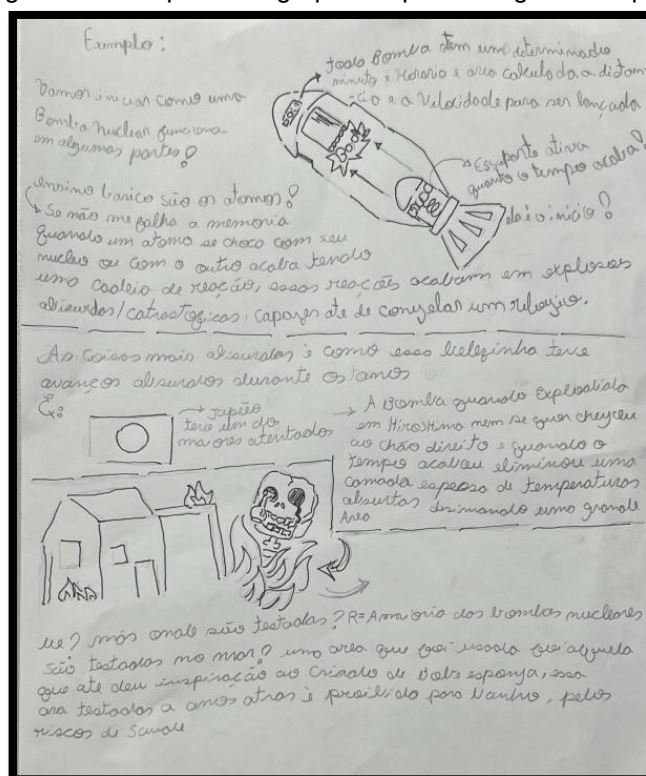 Exemplo:
Vamos iniciar como uma
Bomba nuclear funciona
em algumas partes?
toda Bomba tem um determinado
minuto e Horario e area calculada a distan-
cia e a Velocidade para ser lançada
Essa parte ativa
quanto o tempo acaba?
daí o início?
ensino basico são os atomos?
Se não me falha a memoria
quando um atomo se choca com seu
nucleo ou com o outro acaba tendo
uma cadeia de reação, essas reacções acabam em explosões
absurdas/catastroficas, capazes ate de congelar um relogio.
As Coisas mais absurdas é como essa belezinha teve
avanços absurdos durante os anos
Ex:
Japão
teve um do
maiores atentados
A Bomba quando Explodida
em Hiroshima nem se quer chegou
ao chão direito e quando o
tempo acabou eliminou uma
camada espessa de temperaturas
absurtas dizimando uma grande
Area
ue? más onde são testadas? R=A maioria das bombas nucleares
são testadas no mar? uma area que foi usada foi aquela
que até deu inspiração ao Criado de bob esponja, essa
ara testados a anos atras é proibido para banho, pelos
riscos de Saude